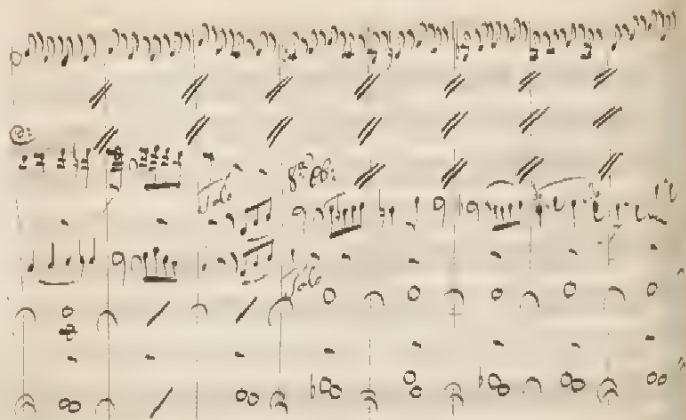 Solo
8ª
Solo